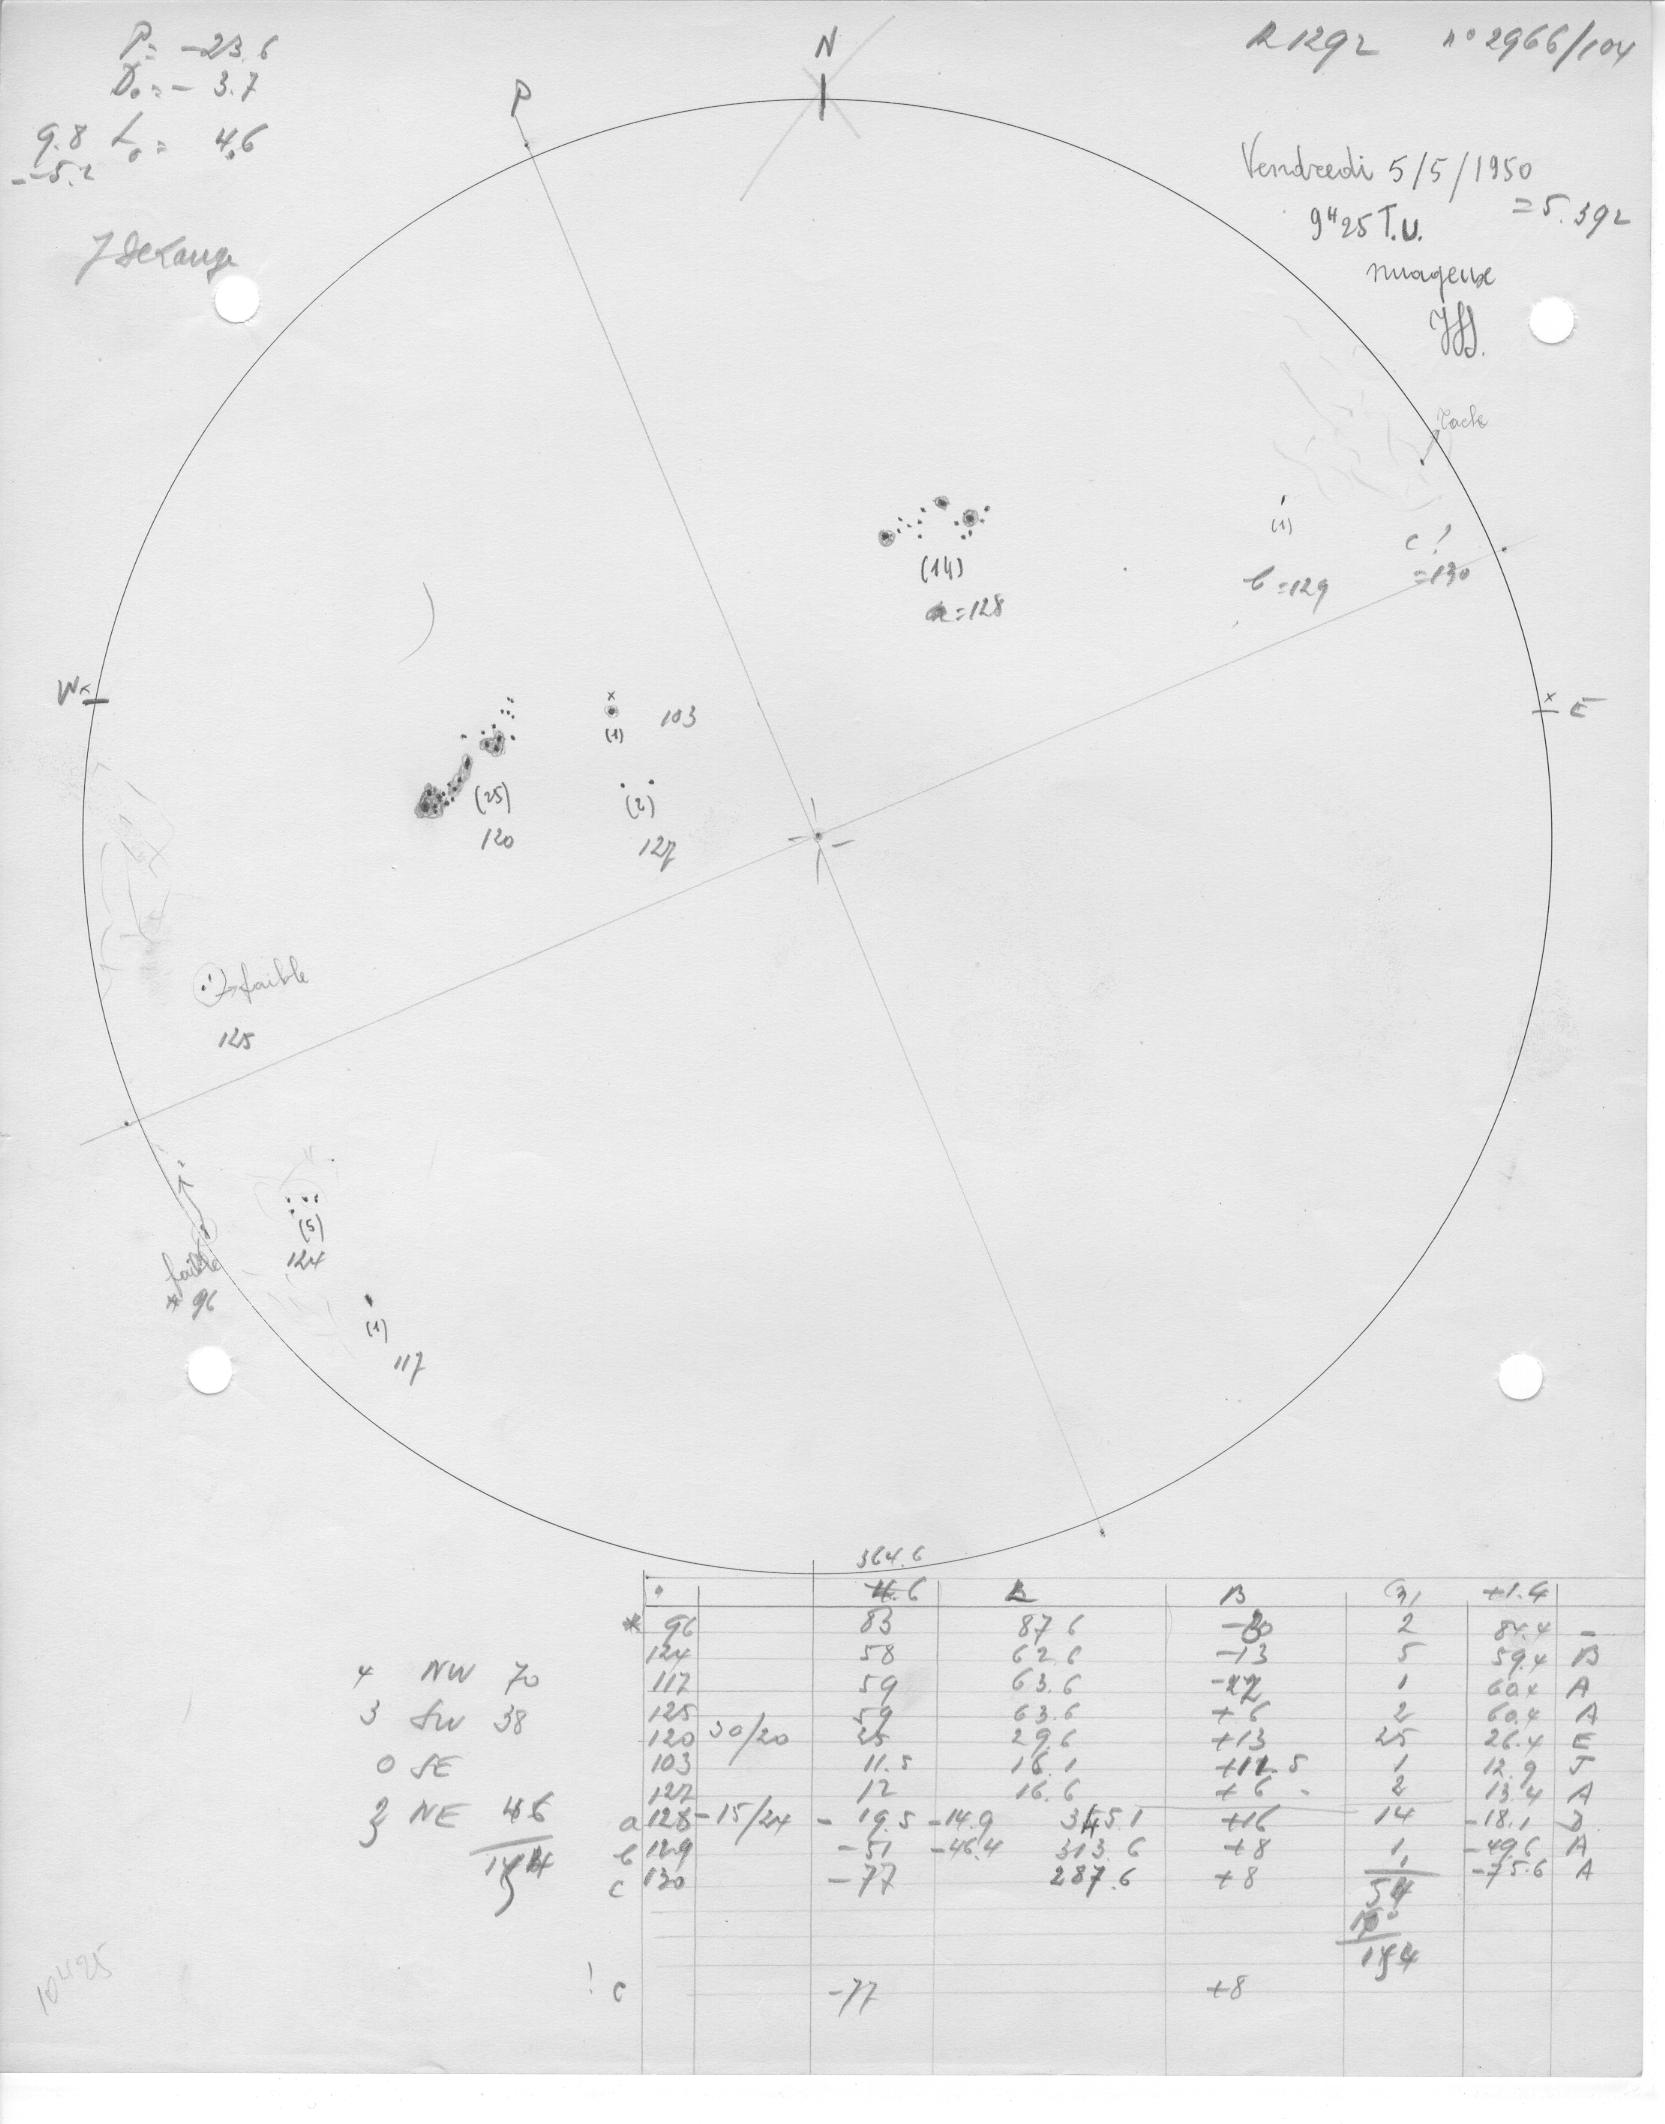 P= -23.6
D₀ = - 3.7
9.8 L₀ = 4.6
-5.2
P
N
R 1292 n° 2966/104
Vendredi 5/5/1950
= 5.392
9ᴴ25 T.U.
nuageux
Tache
(1)
c!
b=129
=130
(14)
a=128
W
E
x
103
(1)
(25)
(2)
120
127
faible
125
(5)
124
faible
* 96
(1)
117
364.6
4.6 L B +1.4
* 96 83 87.6 2 84.4 -
124 58 62.6 -13 5 59.4 B
117 59 63.6 1 60.4 A
125 59 63.6 +6 2 60.4 A
120 30/20 25 29.6 +13 25 26.4 E
103 11.5 16.1 +11.5 1 12.9 J
127 12 16.6 +6 2 13.4 A
a 128 -15/24 -19.5 -14.9 345.1 +16 14 -18.1 D
b 129 -51 -46.4 313.6 +8 1 -49.6 A
c 130 -77 287.6 +8 1 -75.6 A
54
100
154
4 NW 70
3 SW 38
0 SE
3 NE 46
154
! c -77 +8
10ᴴ25